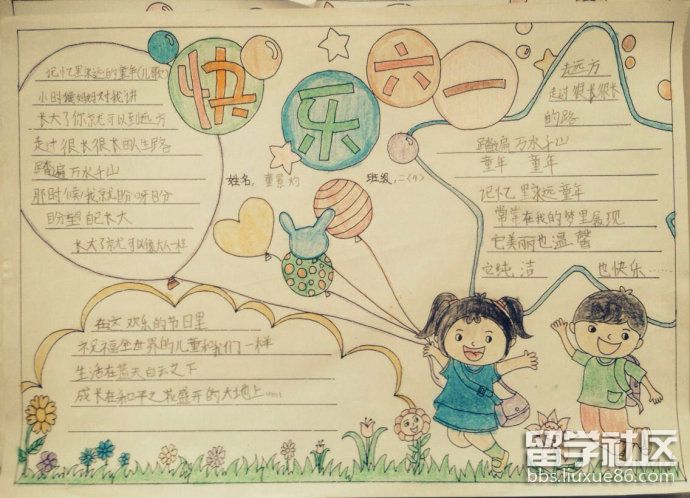 快乐六一
姓名：董景灼 班级：二〈4〉
记忆里永远的童年(儿歌)
小时候妈妈对我讲
长大了你就可以到远方
走过很长很长的人生路
踏遍万水千山
那时候我就盼呀盼
盼望自己长大
长大了就可以像大人一样
去远方
走过很长很长
的路
踏遍万水千山
童年 童年
记忆里永远童年
常常在我的梦里展现
它美丽也温馨
它纯洁 也快乐……
在这欢乐的节日里
祝福全世界的儿童和我们一样
生活在蓝天白云之下
成长在和平之花盛开的大地上……
留学社区
bbs.liuxue86.com